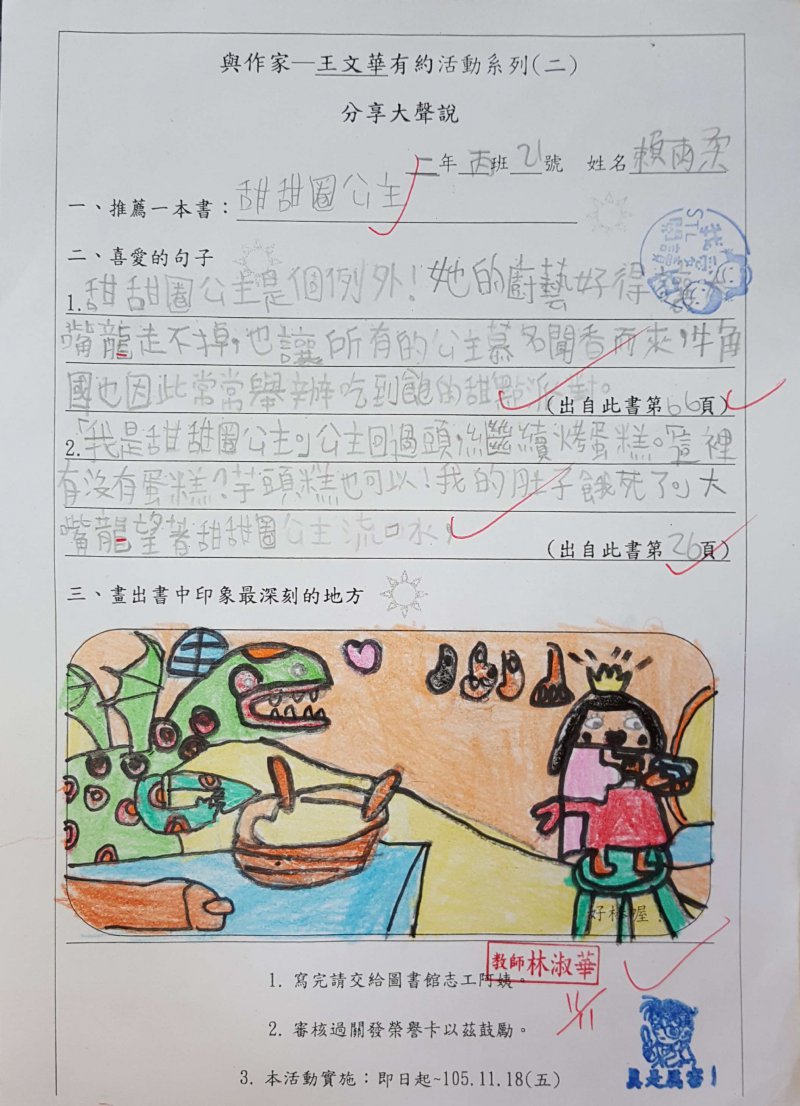 與作家—王文華有約活動系列(二)
分享大聲說
二年丙班21號 姓名賴雨柔
一、推薦一本書：甜甜圈公主
二、喜愛的句子
1.甜甜圈公主是個例外！她的廚藝好得讓
嘴龍走不掉，也讓所有的公主慕名聞香而來，牛角
國也因此常常舉辦吃到飽的甜點派對。
(出自此書第66頁)
2.「我是甜甜圈公主。」公主回過頭，繼續烤蛋糕。「這裡
有沒有蛋糕？芋頭糕也可以！我的肚子餓死了。」大
嘴龍望著甜甜圈公主流口水，
(出自此書第26頁)
三、畫出書中印象最深刻的地方
好棒喔！
教師林淑華
11/11
1. 寫完請交給圖書館志工阿姨。
2. 審核過關發榮譽卡以茲鼓勵。
3. 本活動實施：即日起~105.11.18(五)
真是厲害！